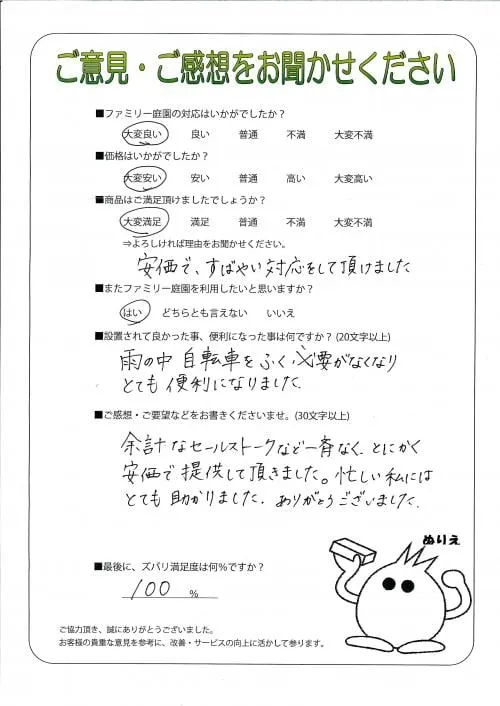 ご意見・ご感想をお聞かせください
■ファミリー庭園の対応はいかがでしたか？
大変良い 良い 普通 不満 大変不満
■価格はいかがでしたか？
大変安い 安い 普通 高い 大変高い
■商品はご満足頂けましたでしょうか？
大変満足 満足 普通 不満 大変不満
⇒よろしければ理由をお聞かせください。
安価で、すばやい対応をして頂けました
■またファミリー庭園を利用したいと思いますか？
はい どちらとも言えない いいえ
■設置されて良かった事、便利になった事は何ですか？(20文字以上)
雨の中 自転車をふく必要がなくなり
とても便利になりました.
■ご感想・ご要望などをお書きくださいませ。(30文字以上)
余計なセールストークなど一斉なく、とにかく
安価で提供して頂きました。忙しい私には
とても助かりました. ありがとうございました.
ぬりえ
■最後に、ズバリ満足度は何％ですか？
100 %
ご協力頂き、誠にありがとうございました。
お客様の貴重な意見を参考に、改善・サービスの向上に活かして参ります。